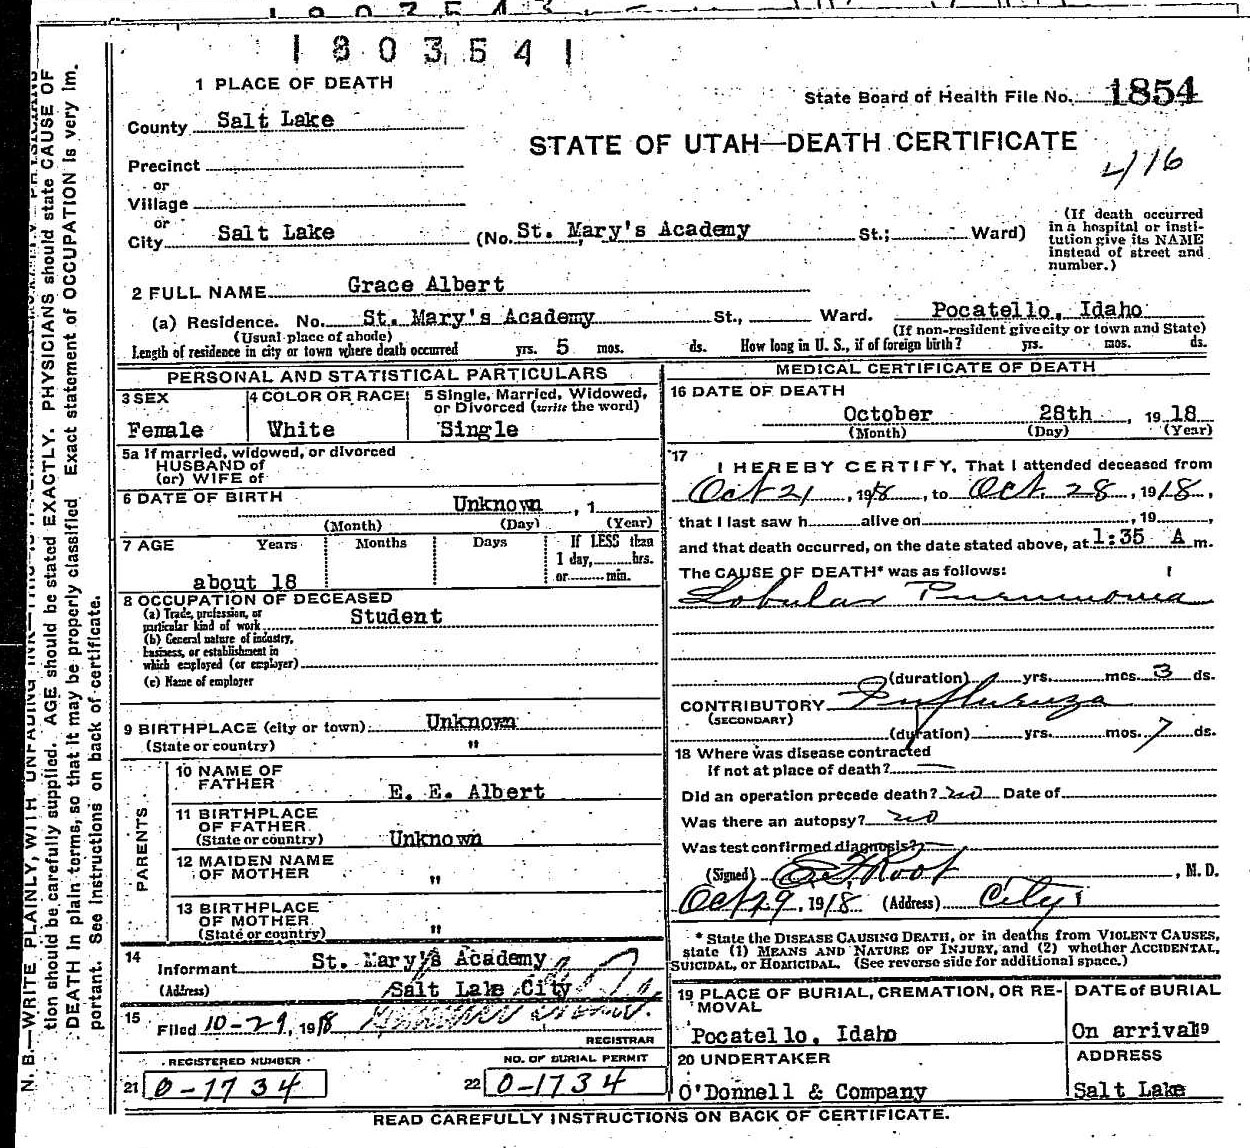 1803541
1 PLACE OF DEATH
State Board of Health File No. 1854
County Salt Lake
STATE OF UTAH—DEATH CERTIFICATE
416
Precinct
or
Village
or
City Salt Lake (No. St. Mary's Academy St.; Ward)
(If death occurred
in a hospital or insti-
tution give its NAME
instead of street and
number.)
2 FULL NAME Grace Albert
(a) Residence. No. St. Mary's Academy St., Ward. Pocatello, Idaho
(Usual place of abode) (If non-resident give city or town and State)
Length of residence in city or town where death occurred yrs. 5 mos. ds. How long in U. S., if of foreign birth? yrs. mos. ds.
PERSONAL AND STATISTICAL PARTICULARS
3 SEX
Female
4 COLOR OR RACE
White
5 Single, Married, Widowed,
or Divorced (write the word)
Single
5a If married, widowed, or divorced
HUSBAND of
(or) WIFE of
6 DATE OF BIRTH Unknown, 1
(Month) (Day) (Year)
7 AGE Years Months Days If LESS than
1 day, hrs.
or min.
about 18
8 OCCUPATION OF DECEASED
(a) Trade, profession, or
particular kind of work Student
(b) General nature of industry,
business, or establishment in
which employed (or employer)
(c) Name of employer
9 BIRTHPLACE (city or town) Unknown
(State or country) "
PARENTS
10 NAME OF
FATHER E. E. Albert
11 BIRTHPLACE
OF FATHER
(State or country) Unknown
12 MAIDEN NAME
OF MOTHER "
13 BIRTHPLACE
OF MOTHER
(State or country) "
14
Informant St. Mary's Academy
(Address) Salt Lake City
15
Filed 10-29, 1918
REGISTRAR
REGISTERED NUMBER
21 0-1734
NO. OF BURIAL PERMIT
22 0-1734
MEDICAL CERTIFICATE OF DEATH
16 DATE OF DEATH
October 28th, 1918
(Month) (Day) (Year)
17
I HEREBY CERTIFY, That I attended deceased from
Oct 21, 1918, to Oct. 28, 1918,
that I last saw h alive on , 19 ,
and that death occurred, on the date stated above, at 1:35 A m.
The CAUSE OF DEATH* was as follows:
Lobular Pneumonia
(duration) yrs. mos. 3 ds.
CONTRIBUTORY Influenza
(SECONDARY)
(duration) yrs. mos. 7 ds.
18 Where was disease contracted
if not at place of death? —
Did an operation precede death? no Date of
Was there an autopsy? no
Was test confirmed diagnosis? —
(Signed) Root, M. D.
Oct 29, 1918 (Address) City
* State the DISEASE CAUSING DEATH, or in deaths from VIOLENT CAUSES,
state (1) MEANS AND NATURE OF INJURY, and (2) whether ACCIDENTAL,
SUICIDAL, or HOMICIDAL. (See reverse side for additional space.)
19 PLACE OF BURIAL, CREMATION, OR RE-
MOVAL
Pocatello, Idaho
DATE of BURIAL
On arrival 19
20 UNDERTAKER
O'Donnell & Company
ADDRESS
Salt Lake
READ CAREFULLY INSTRUCTIONS ON BACK OF CERTIFICATE.
N. B.—WRITE PLAINLY, WITH UNFADING INK—THIS IS
tion should be carefully supplied. AGE should be stated EXACTLY. PHYSICIANS should state CAUSE OF
DEATH in plain terms, so that it may be properly classified. Exact statement of OCCUPATION is very im-
portant. See instructions on back of certificate.